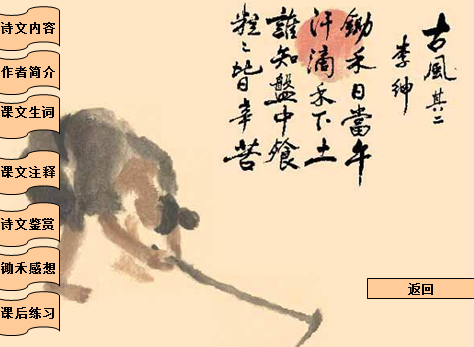 古風其二
李紳
鋤禾日當午
汗滴禾下土
誰知盤中餐
粒〻皆辛苦
诗文内容
作者简介
课文生词
课文注释
诗文鉴赏
锄禾感想
课后练习
返回